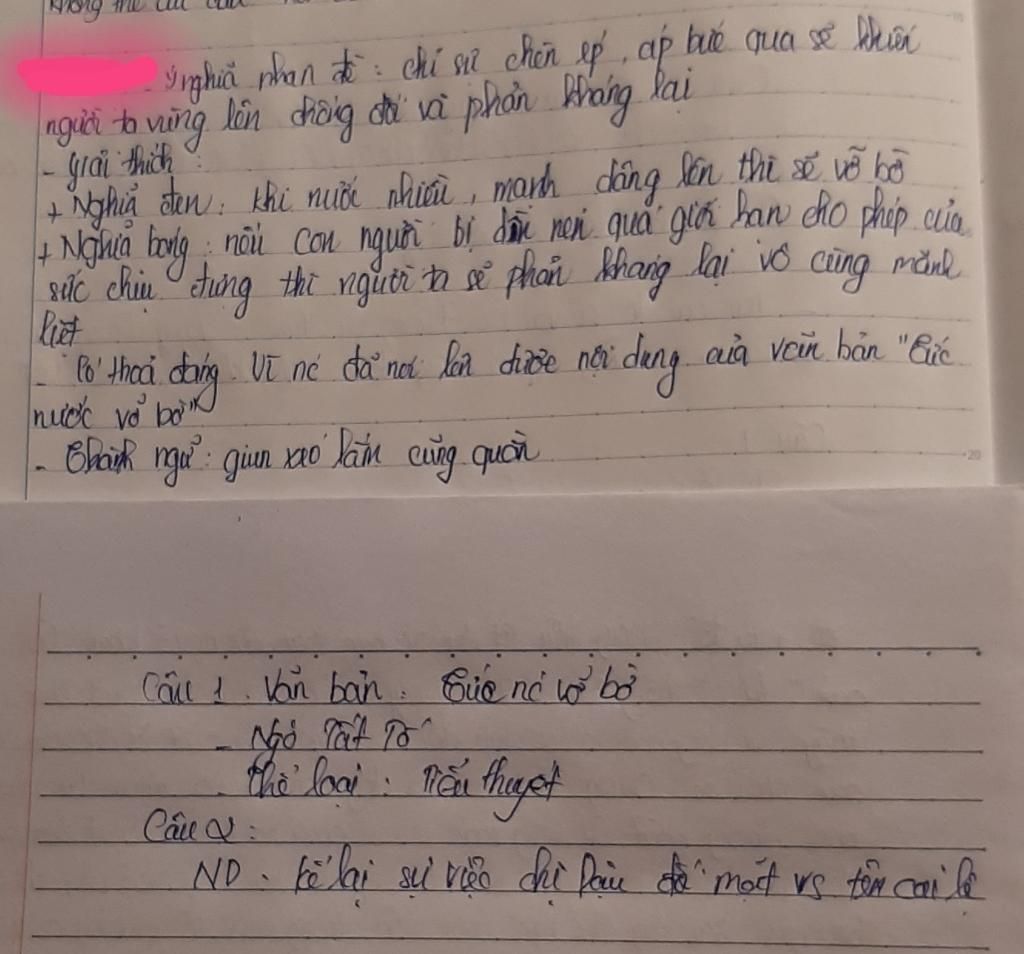 không thể
ý nghĩa nhan đề : chỉ sự chèn ép, áp bức quá sẽ khiến
người ta vùng lên chống đối và phản kháng lại
- giải thích :
+ Nghĩa đen : khi nước nhiều, mạnh dâng lên thì sẽ vỡ bờ
+ Nghĩa bóng : nếu con người bị dồn nén quá giới hạn cho phép của
sức chịu đựng thì người ta sẽ phản kháng lại vô cùng mãnh
liệt
- Có thoả đáng. Vì nó đã nói lên được nội dung của văn bản "Tức
nước vỡ bờ"
- Thành ngữ : giun xéo lắm cũng quằn
Câu 1. Văn bản : Tức nc vỡ bờ
- Ngô Tất Tố
- Thể loại : Tiểu thuyết
Câu 2 :
ND : kể lại sự việc chị Dậu đối mặt vs tên cai lệ